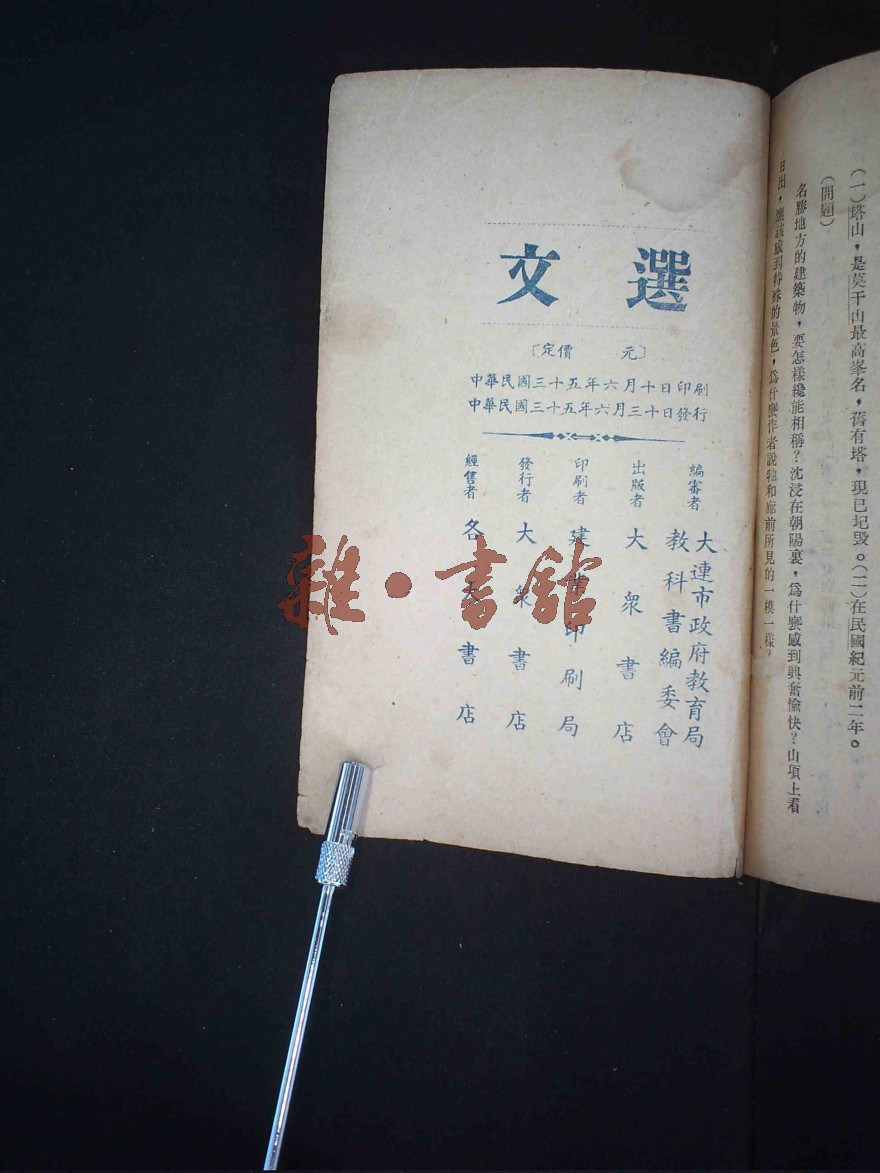 (一)塔山，是莫干山最高峯名，舊有塔，現已圮毀。(二)在民國紀元前二年。
(問題)
名勝地方的建築物，要怎樣纔能相稱？沈浸在朝陽裏，爲什麽感到興奮愉快？山項上看
日出，應該感到特殊的景色，爲什麽作者說牠和廊前所見的一模一樣？
文選
〔定價　　元〕
中華民國三十五年六月十日印刷
中華民國三十五年六月三十日發行
編審者 大連市政府教育局
教科書編委會
出版者 大衆書店
印刷者 建業印刷局
發行者 大衆書店
經售者 各大書店
雜·書館